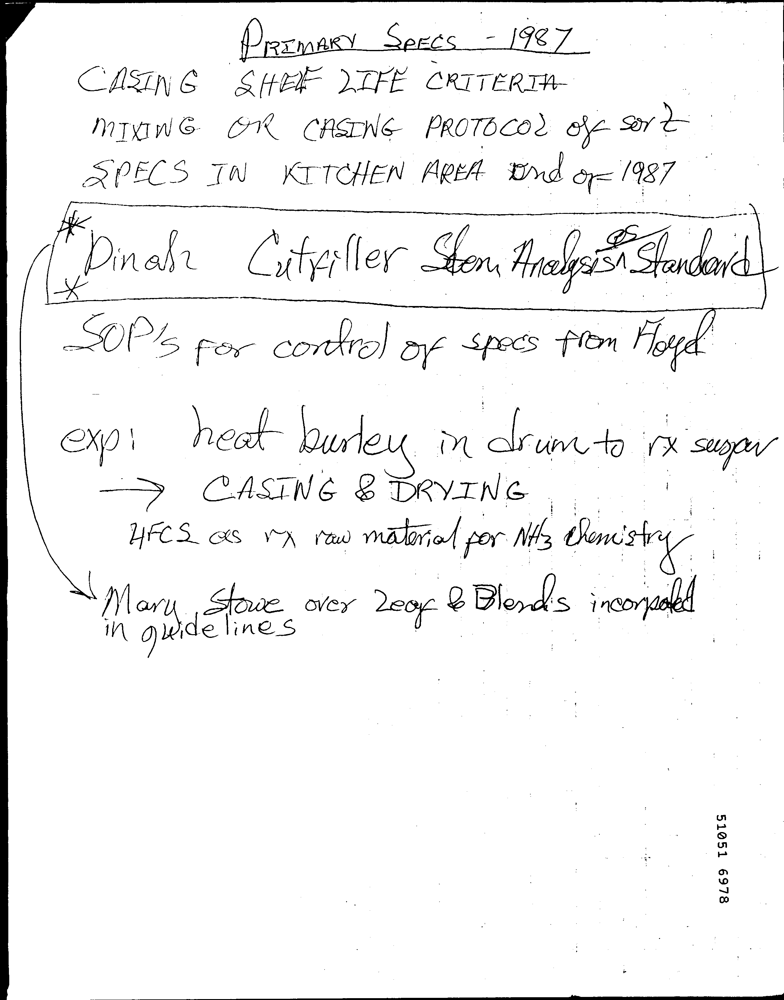 PRIMARY SPECS - 1987
CASING SHELF LIFE CRITERIA
MIXING OR CASING PROTOCOL of sort
SPECS IN KITCHEN AREA End of 1987
* Dinah Cutfiller Stem Analysis as Standard
*
SOP's for control of specs from Floyd
exp: heat burley in drum to rx
→ CASING & DRYING
HFCS as rx raw material for NH3 chemistry
Mary Stowe over Leaf & Blends
in guidelines
51051 6978